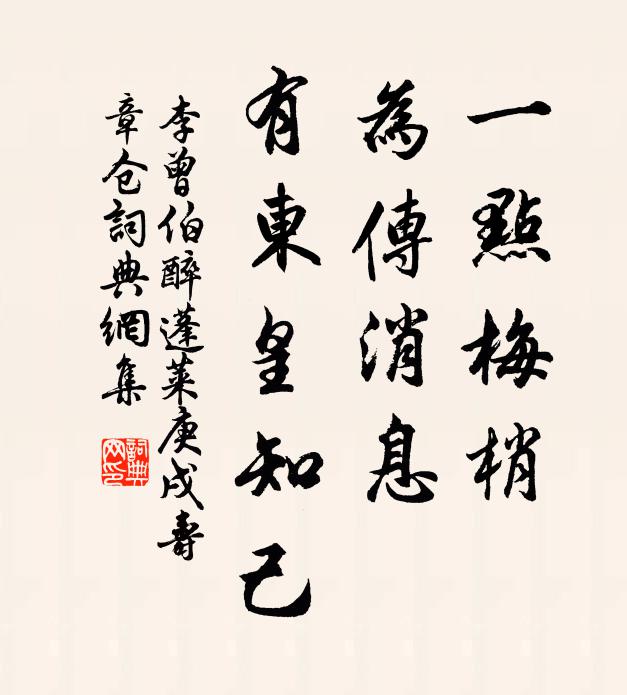 一點梅梢
為傳消息
有東皇知己
李曾伯醉蓬萊庚戌壽
章仓詞典網集
詞典
网印